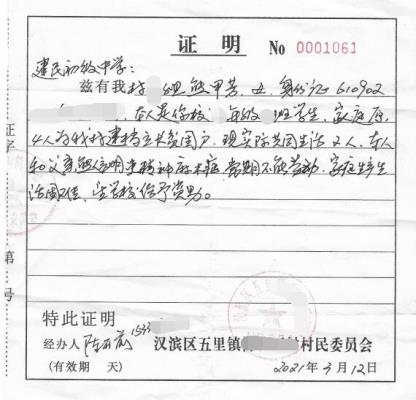 证明 No 0001061
建民初级中学：
兹有我村 组熊甲芳，女，身份证610902
，本人是你校 年级 班学生，家庭
4人为我村建档立卡贫困户，现实际共同生活2人，本人
和父亲熊 明 精神病 长期不能劳动，家庭生产生
活困 ，望学校给予资助。
证字
第 号
特此证明
经办人 陈 1533
汉滨区五里镇 村民委员会
(有效期 天)
2021年3月12日